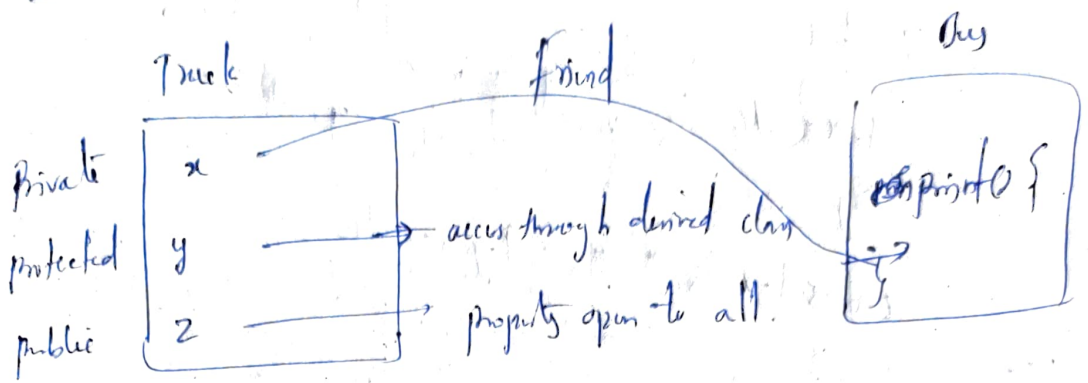 Truck
Friend
Bus
Private
x
print() {
protected
y
access through derived class
}
public
z
property open to all.